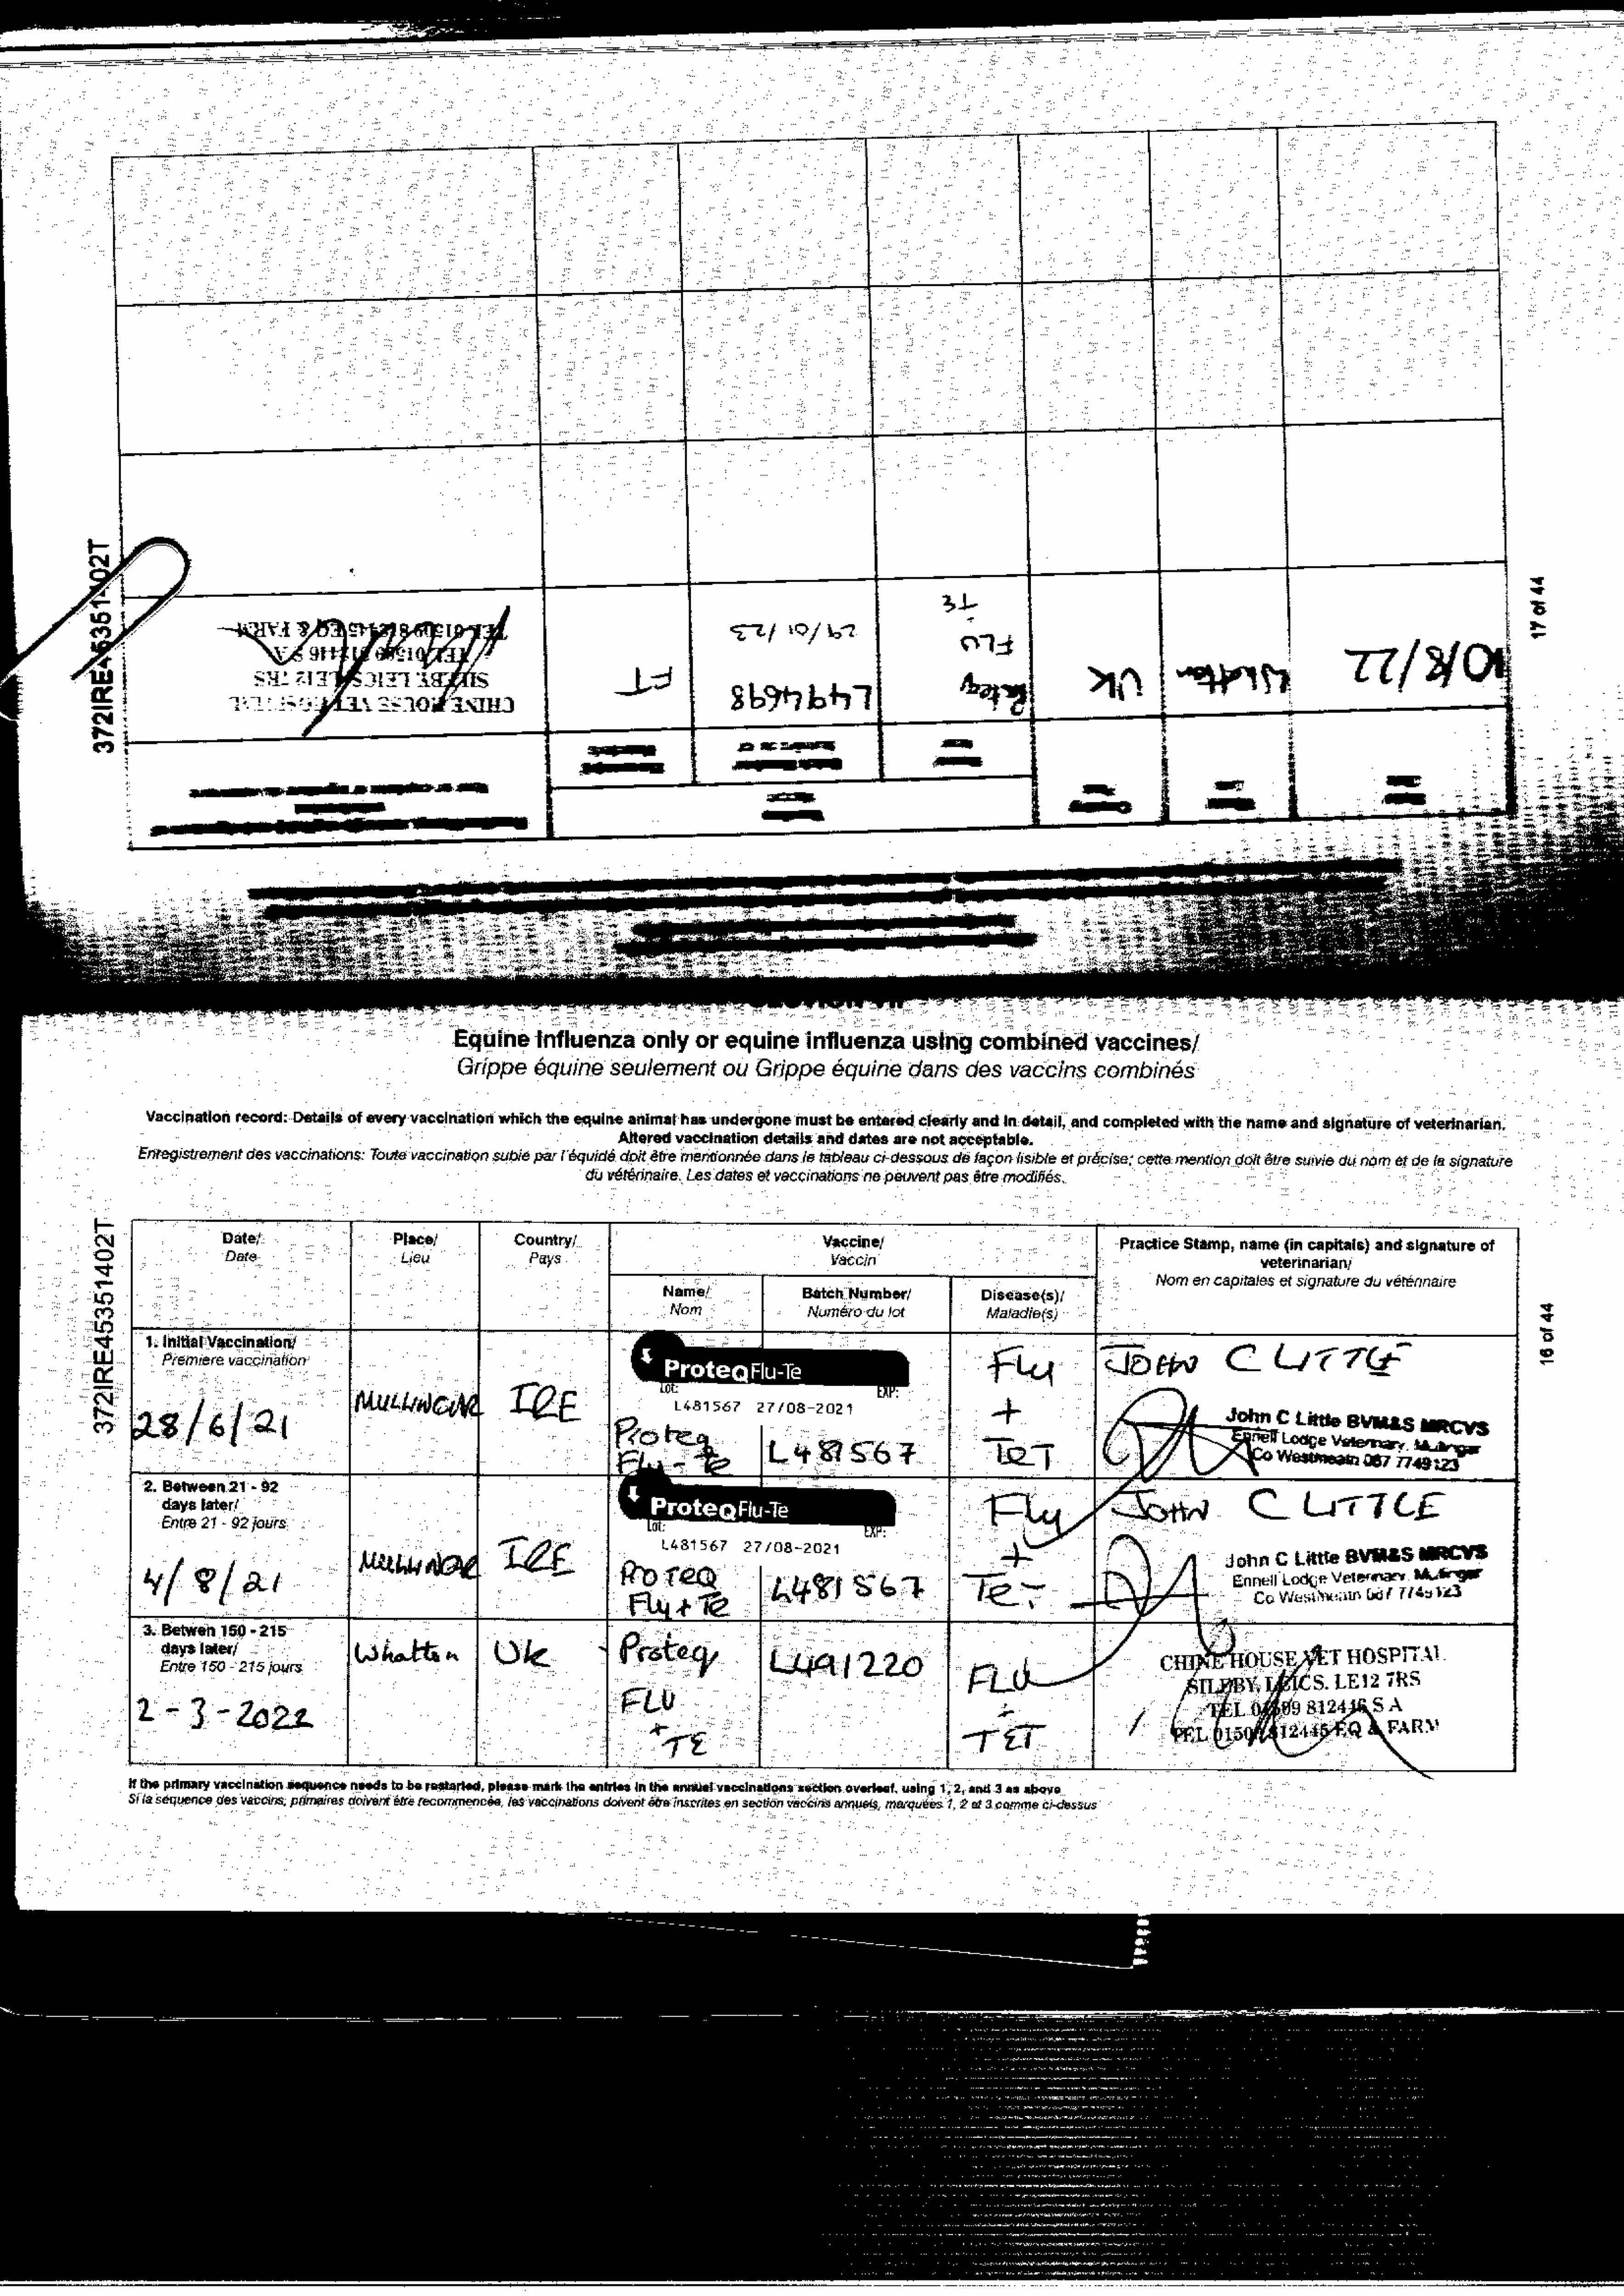 372IRE45351402T
17 of 44
10/8/22
Whatton
UK
Proteq
FLU
TE
L494698
29/01/23
FT
CHINE HOUSE VET HOSPITAL
SILEBY LEICS. LE12 7RS
TEL 01509 812446 S A
TEL 01509 812445 EQ & FARM
Equine Influenza only or equine influenza using combined vaccines/
Grippe équine seulement ou Grippe équine dans des vaccins combinés
Vaccination record: Details of every vaccination which the equine animal has undergone must be entered clearly and in detail, and completed with the name and signature of veterinarian.
Altered vaccination details and dates are not acceptable.
Enregistrement des vaccinations: Toute vaccination subie par l'équidé doit être mentionnée dans le tableau ci-dessous de façon lisible et précise; cette mention doit être suivie du nom et de la signature
du vétérinaire. Les dates et vaccinations ne peuvent pas être modifiés.
372IRE45351402T
16 of 44
Date/
Date
Place/
Lieu
Country/
Pays
Vaccine/
Vaccin
Name/
Nom
Batch Number/
Numéro du lot
Disease(s)/
Maladie(s)
Practice Stamp, name (in capitals) and signature of
veterinarian/
Nom en capitales et signature du vétérinaire
1. Initial Vaccination/
Premiere vaccination
28/6/21
MULLINGAR
IRE
ProteqFlu-Te
Lot: EXP:
L481567 27/08-2021
Proteq
Flu-Te
L481567
Flu
+
TeT
JOHN C LITTLE
John C Little BVM&S MRCVS
Ennell Lodge Veterinary, Mullingar
Co Westmeath 087 7749123
2. Between 21 - 92
days later/
Entre 21 - 92 jours
4/8/21
MULLINGAR
IRE
ProteqFlu-Te
Lot: EXP:
L481567 27/08-2021
Proteq
Flu+Te
L481567
Flu
+
Te-
JOHN C LITTLE
John C Little BVM&S MRCVS
Ennell Lodge Veterinary, Mullingar
Co Westmeath 087 7749123
3. Betwen 150 - 215
days later/
Entre 150 - 215 jours
2-3-2022
Whatton
UK
Proteq
FLU
+
TE
L491220
FLU
+
TET
CHINE HOUSE VET HOSPITAL
SILEBY, LEICS. LE12 7RS
TEL 01509 812446 S A
TEL 01509 812445 EQ & FARM
If the primary vaccination sequence needs to be restarted, please mark the entries in the annual vaccinations section overleaf, using 1, 2, and 3 as above
Si la séquence des vaccins, primaires doivent être recommencée, les vaccinations doivent être inscrites en section vaccins annuels, marquées 1, 2 et 3 comme ci-dessus